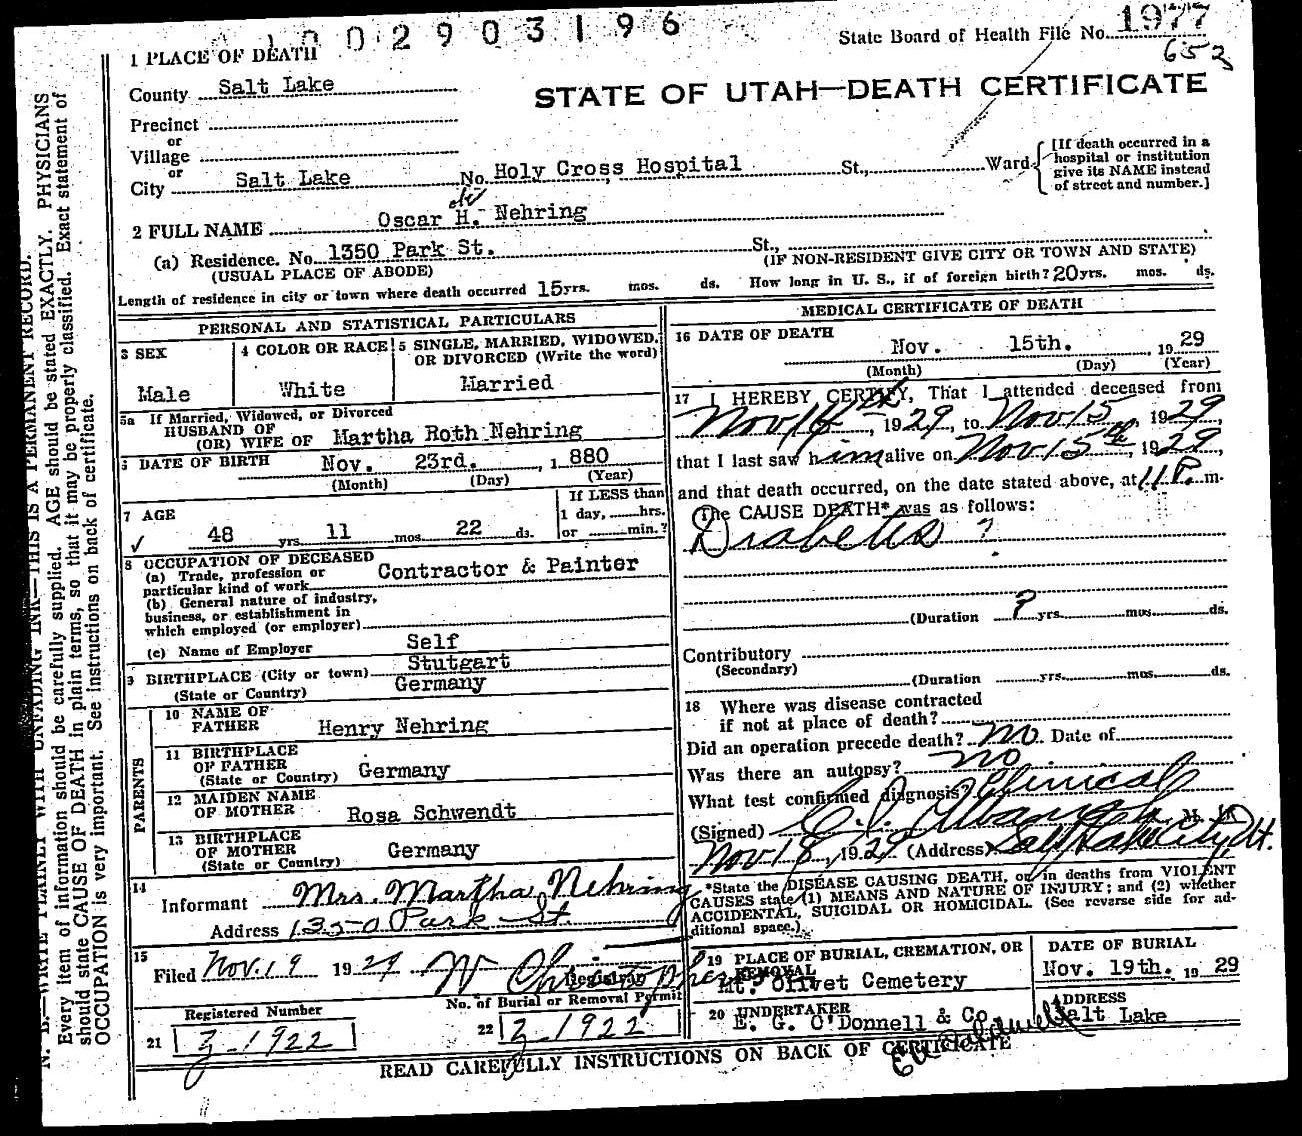 1002903196
State Board of Health File No. 1977
652
1 PLACE OF DEATH
STATE OF UTAH—DEATH CERTIFICATE
County Salt Lake
Precinct
or
Village
or
City Salt Lake No. Holy Cross Hospital St., Ward
[If death occurred in a
hospital or institution
give its NAME instead
of street and number.]
2 FULL NAME Oscar H. Nehring
(a) Residence. No. 1350 Park St. St.,
(USUAL PLACE OF ABODE) (IF NON-RESIDENT GIVE CITY OR TOWN AND STATE)
Length of residence in city or town where death occurred 15 yrs. mos. ds. How long in U. S., if of foreign birth? 20 yrs. mos. ds.
PERSONAL AND STATISTICAL PARTICULARS
3 SEX
Male
4 COLOR OR RACE
White
5 SINGLE, MARRIED, WIDOWED,
OR DIVORCED (Write the word)
Married
5a If Married, Widowed, or Divorced
HUSBAND OF
(OR) WIFE OF Martha Roth Nehring
6 DATE OF BIRTH Nov. 23rd. , 1 880
(Month) (Day) (Year)
7 AGE
48 yrs 11 mos 22 ds.
If LESS than
1 day, hrs.
or min.?
8 OCCUPATION OF DECEASED
(a) Trade, profession or
particular kind of work Contractor & Painter
(b) General nature of industry,
business, or establishment in
which employed (or employer)
(c) Name of Employer Self
9 BIRTHPLACE (City or town) Stutgart
(State or Country) Germany
PARENTS
10 NAME OF
FATHER Henry Nehring
11 BIRTHPLACE
OF FATHER
(State or Country) Germany
12 MAIDEN NAME
OF MOTHER Rosa Schwendt
13 BIRTHPLACE
OF MOTHER
(State or Country) Germany
14
Informant Mrs. Martha Nehring
Address 1350 Park St.
15
Filed Nov. 19 1929 W Christopherson
Registrar
Registered Number
21 Z-1922
No. of Burial or Removal Permit
22 Z-1922
MEDICAL CERTIFICATE OF DEATH
16 DATE OF DEATH
Nov. 15th. , 19 29
(Month) (Day) (Year)
17 I HEREBY CERTIFY, That I attended deceased from
Nov 14th, 1929, to Nov 15, 1929,
that I last saw h im alive on Nov 15th, 1929,
and that death occurred, on the date stated above, at 11 P. m.
The CAUSE DEATH* was as follows:
Diabetis ?
(Duration ? yrs. mos. ds.
Contributory
(Secondary)
(Duration yrs. mos. ds.
18 Where was disease contracted
if not at place of death?
Did an operation precede death? No Date of
Was there an autopsy? no
What test confirmed diagnosis? Clinical
(Signed) M. D.
Nov 18, 1929 (Address) Salt Lake City, Ut.
*State the DISEASE CAUSING DEATH, or in deaths from VIOLENT
CAUSES state (1) MEANS AND NATURE OF INJURY; and (2) whether
ACCIDENTAL, SUICIDAL OR HOMICIDAL. (See reverse side for ad-
ditional space.)
19 PLACE OF BURIAL, CREMATION, OR
REMOVAL
Mt. Olivet Cemetery
DATE OF BURIAL
Nov. 19th. 19 29
20 UNDERTAKER
E. G. O'Donnell & Co
ADDRESS
Salt Lake
READ CAREFULLY INSTRUCTIONS ON BACK OF CERTIFICATE
N. B.—WRITE PLAINLY WITH UNFADING INK—THIS IS A PERMANENT RECORD.
Every item of information should be carefully supplied. AGE should be stated EXACTLY. PHYSICIANS
should state CAUSE OF DEATH in plain terms, so that it may be properly classified. Exact statement of
OCCUPATION is very important. See instructions on back of certificate.